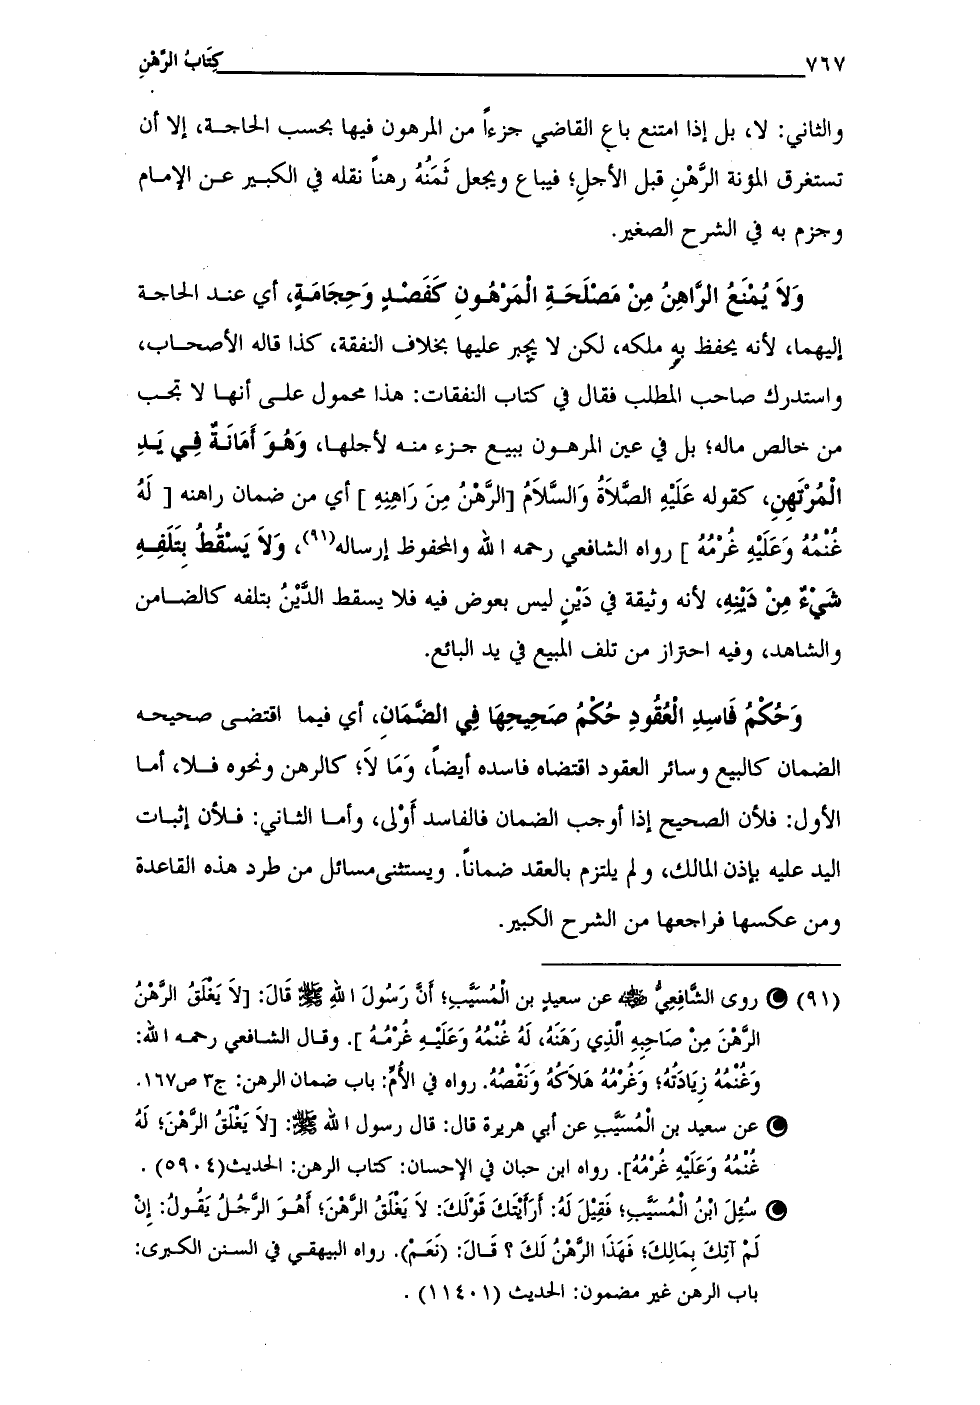 ٧٦٧ كِتَابُ الرَّهْنِ
والثاني: لا، بل إذا امتنع باع القاضي جزءاً من المرهون فيها بحسب الحاجة، إلا أن
تستغرق المؤنة الرَّهْنِ قبل الأجلِ؛ فيباع ويجعل ثَمَنُهُ رهناً نقله في الكبير عن الإمام
وجزم به في الشرح الصغير.
وَلاَ يُمْنَعُ الرَّاهِنُ مِنْ مَصْلَحَةِ الْمَرْهُونِ كَفَصْدٍ وَحِجَامَةٍ، أي عند الحاجة
إليهما، لأنه يحفظ بِهِ ملكه، لكن لا يجبر عليها بخلاف النفقة، كذا قاله الأصحاب،
واستدرك صاحب المطلب فقال في كتاب النفقات: هذا محمول على أنها لا تجب
من خالص ماله؛ بل في عين المرهون ببيع جزء منه لأجلها، وَهُوَ أَمَانَةٌ فِي يَدِ
الْمُرْتَهِنِ، كقوله عَلَيْهِ الصَّلاَةُ وَالسَّلاَمُ [الرَّهْنُ مِنَ رَاهِنِهِ ] أي من ضمان راهنه [ لَهُ
غُنْمُهُ وَعَلَيْهِ غُرْمُهُ ] رواه الشافعي رحمه الله والمحفوظ إرساله(٩١)، وَلاَ يَسْقُطُ بِتَلَفِهِ
شَيْءٌ مِنْ دَيْنِهِ، لأنه وثيقة في دَيْنٍ ليس بعوض فيه فلا يسقط الدَّيْنُ بتلفه كالضامن
والشاهد، وفيه احتراز من تلف المبيع في يد البائع.
وَحُكْمُ فَاسِدِ الْعُقُودِ حُكْمُ صَحِيحِهَا فِي الضَّمَانِ، أي فيما اقتضى صحيحه
الضمان كالبيع وسائر العقود اقتضاه فاسده أيضاً، وَمَا لاَ؛ كالرهن ونحوه فلا، أما
الأول: فلأن الصحيح إذا أوجب الضمان فالفاسد أَوْلى، وأما الثاني: فلأن إثبات
اليد عليه بإذن المالك، ولم يلتزم بالعقد ضماناً. ويستثنى مسائل من طرد هذه القاعدة
ومن عكسها فراجعها من الشرح الكبير.
(٩١) روى الشَّافِعِيُّ ﷺ عن سعيدٍ بن الْمُسَيَّبِ؛ أَنَّ رَسُولَ اللهِ ﷺ قَالَ: [لاَ يَغْلَقُ الرَّهْنُ
الرَّهْنَ مِنْ صَاحِبِهِ الَّذِي رَهَنَهُ، لَهُ غُنْمُهُ وَعَلَيْهِ غُرْمُهُ ]. وقال الشافعي رحمه الله:
وَغُنْمُهُ زِيَادَتُهُ؛ وَغُرْمُهُ هَلاَكُهُ وَنَقْصُهُ. رواه في الأُمِّ: باب ضمان الرهن: ج٣ ص١٦٧.
عن سعيد بن الْمُسَيَّبِ عن أبي هريرة قال: قال رسول الله ﷺ: [لاَ يَغْلَقُ الرَّهْنَ؛ لَهُ
غُنْمُهُ وَعَلَيْهِ غُرْمُهُ]. رواه ابن حبان في الإحسان: كتاب الرهن: الحديث(٥٩٠٤).
سُئِلَ ابْنُ الْمُسَيَّبِ؛ فَقِيْلَ لَهُ: أَرَأَيْتَكَ قَوْلَكَ: لاَ يَغْلَقُ الرَّهْنَ؛ أَهُوَ الرَّجُلُ يَقُولُ: إِنْ
لَمْ آتِكَ بِمَالِكَ؛ فَهَذَا الرَّهْنُ لَكَ ؟ قَالَ: (نَعَمْ). رواه البيهقي في السنن الكبرى:
باب الرهن غير مضمون: الحديث (١١٤٠١).